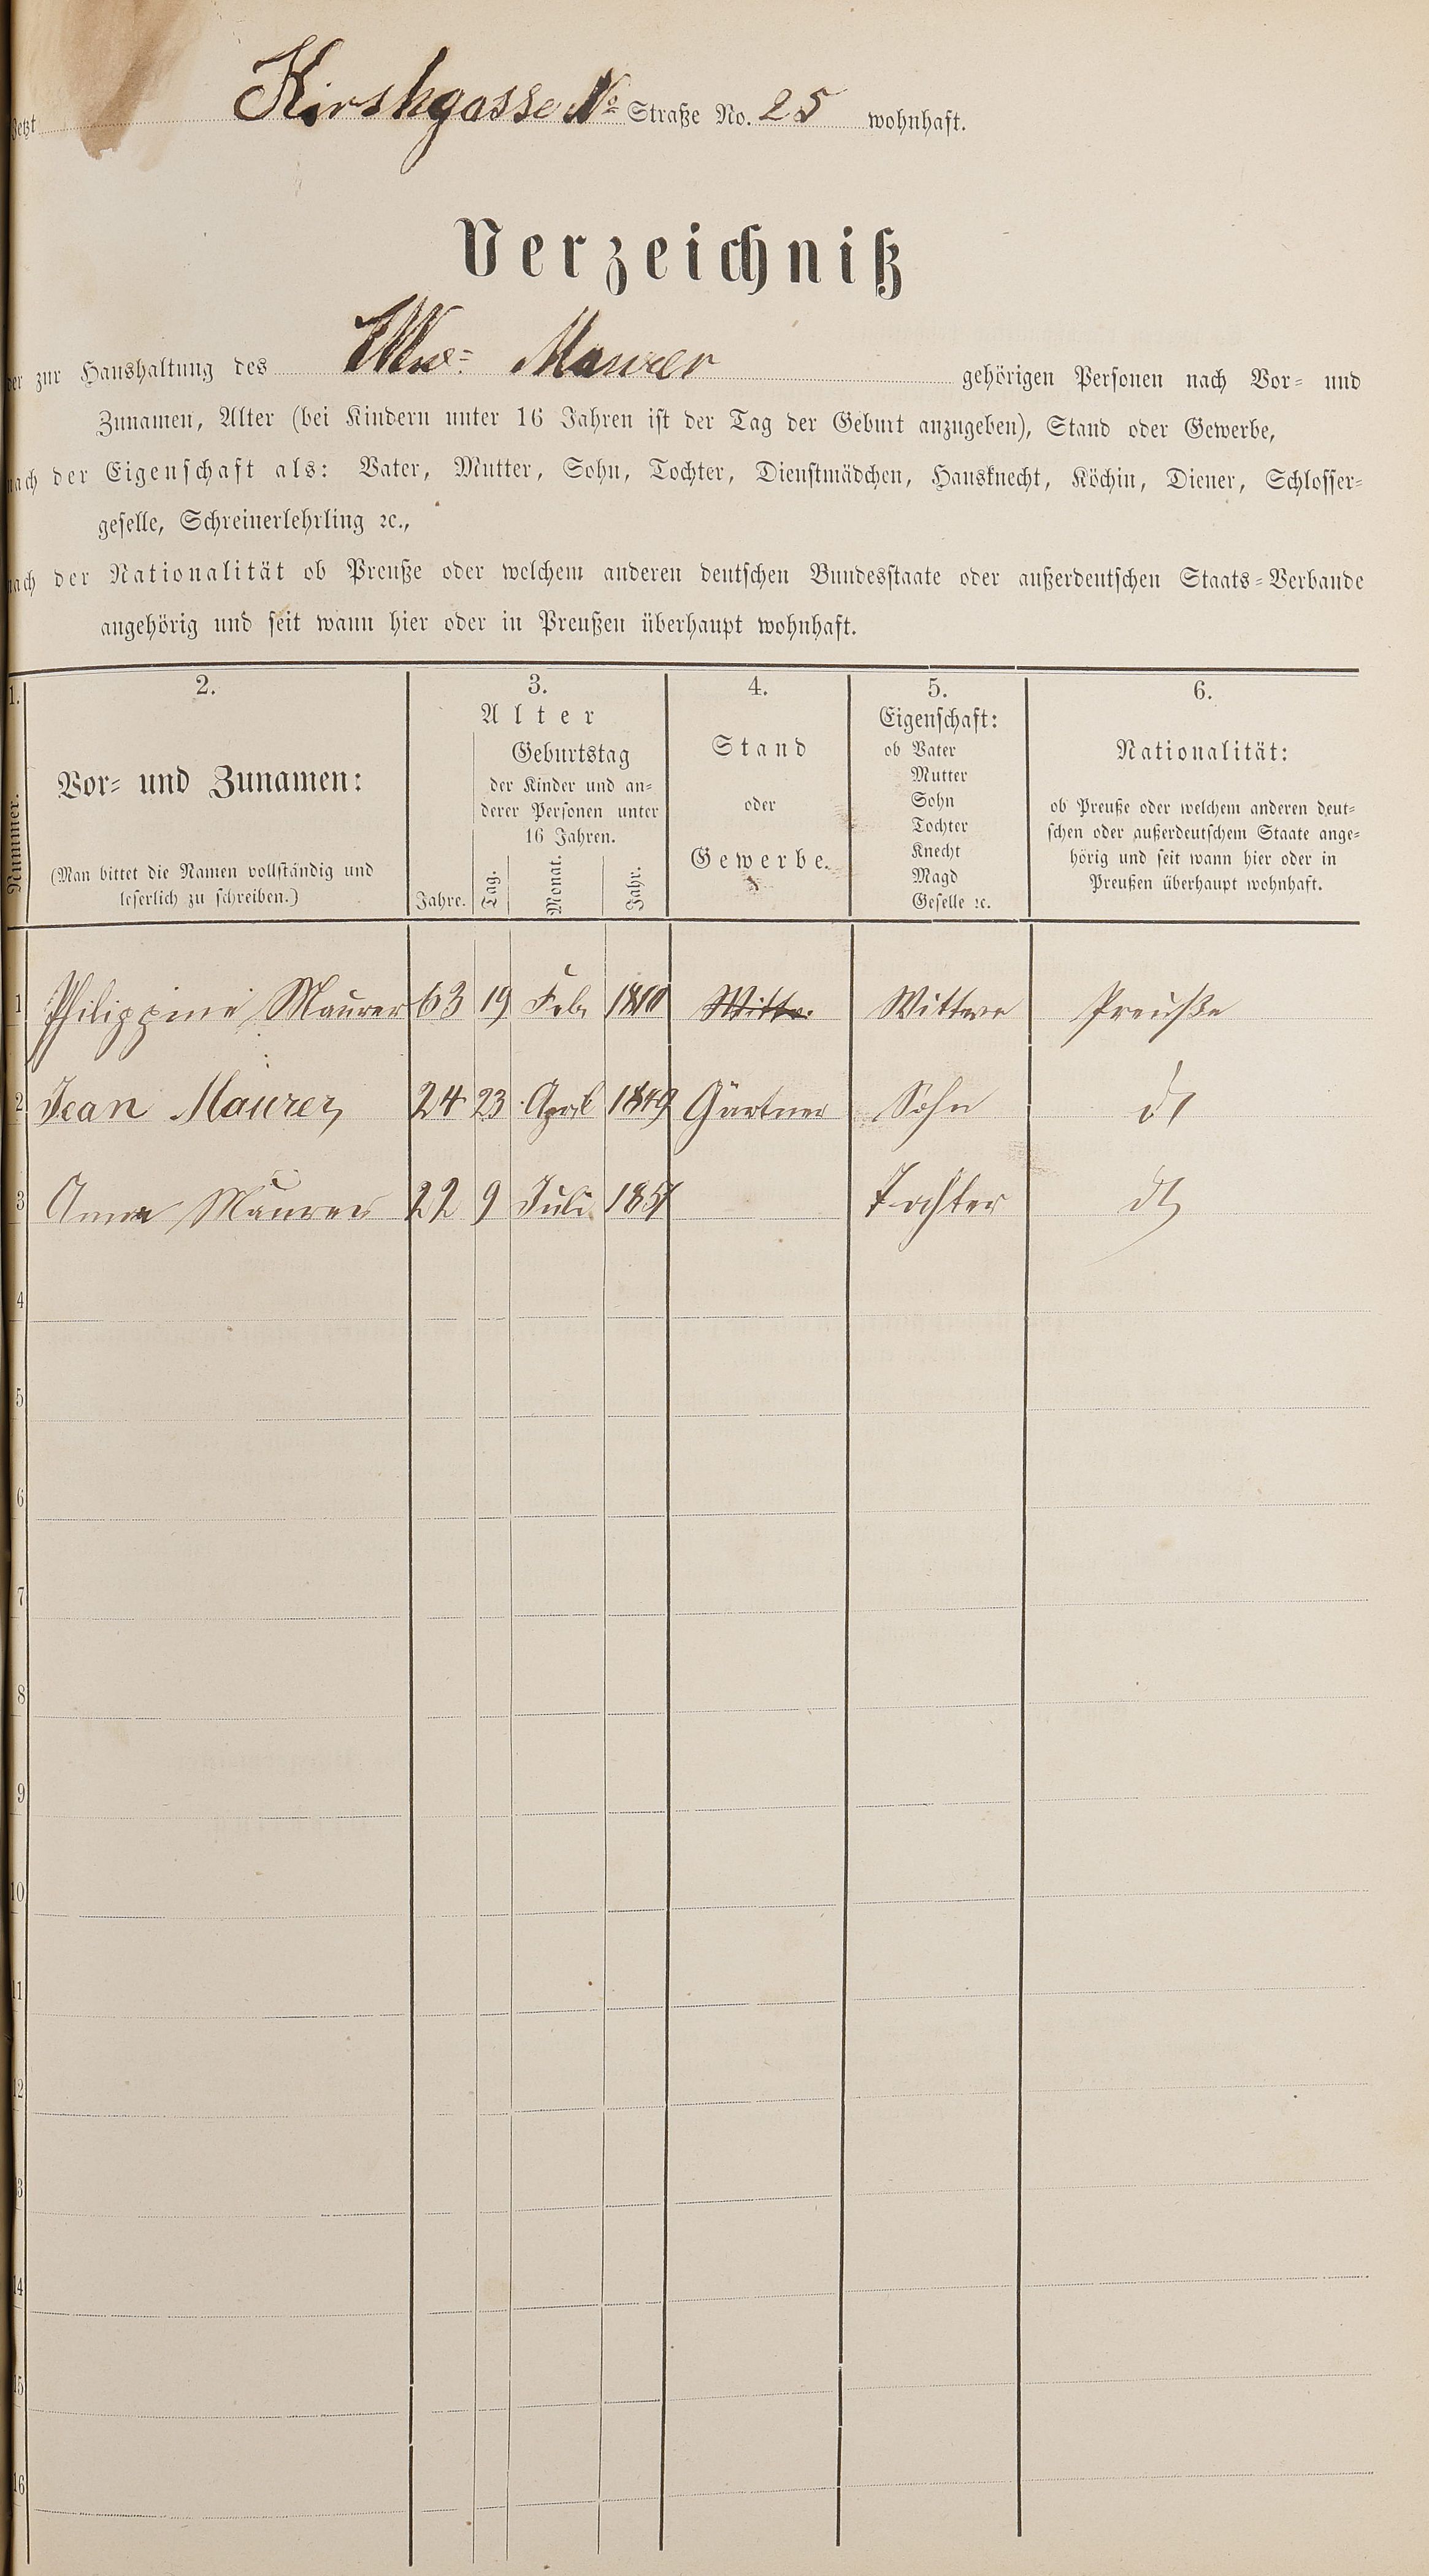 Jetzt Kirshgasse No Straße No. 25 wohnhaft.
Verzeichniß
der zur Haushaltung des Ww= Maurer gehörigen Personen nach Vor= und
Zunamen, Alter (bei Kindern unter 16 Jahren ist der Tag der Geburt anzugeben), Stand oder Gewerbe,
nach der Eigenschaft als: Vater, Mutter, Sohn, Tochter, Dienstmädchen, Hausknecht, Köchin, Diener, Schlosser=
geselle, Schreinerlehrling ꝛc.,
nach der Nationalität ob Preuße oder welchem anderen deutschen Bundesstaate oder außerdeutschen Staats=Verbande
angehörig und seit wann hier oder in Preußen überhaupt wohnhaft.
1. 2. 3. 4. 5. 6.
Nummer.
Vor= und Zunamen:
(Man bittet die Namen vollständig und
leserlich zu schreiben.)
Alter
Jahre.
Geburtstag
der Kinder und an=
derer Personen unter
16 Jahren.
Tag. Monat. Jahr.
Stand
oder
Gewerbe.
Eigenschaft:
ob Vater
Mutter
Sohn
Tochter
Knecht
Magd
Geselle ꝛc.
Nationalität:
ob Preuße oder welchem anderen deut=
schen oder außerdeutschem Staate ange=
hörig und seit wann hier oder in
Preußen überhaupt wohnhaft.
1 Philippine Maurer 63 19 Feb. 1810 Wittw. Wittwe Preuße
2 Jean Maurer 24 23 April 1849 Gärtner Sohn dt
3 Anna Maurer 22 9 Juli 1851 Tochter dt
4
5
6
7
8
9
10
11
12
13
14
15
16